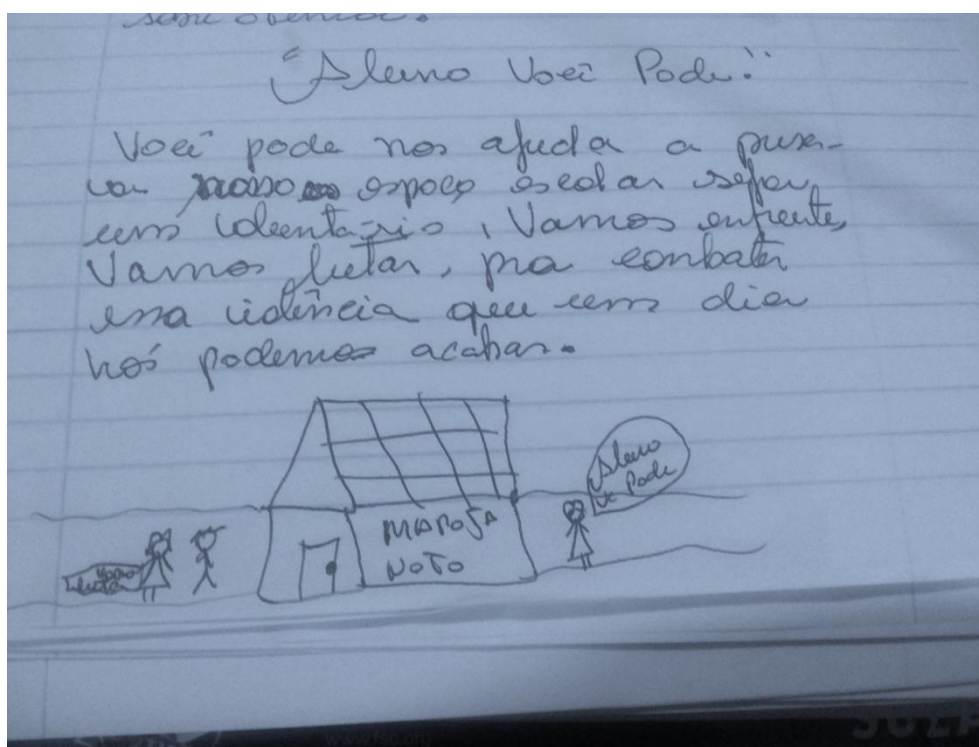 "Aluno Você Pode!"
Você pode nos ajuda a preser-
va nosso espaço escolar seja
um voluntário, Vamos enfrente,
Vamos lutar, pra combater
essa violência que um dia
nós podemos acabar.
Aluno
vc Pode
MAROJA
NOTO
Vamos
Lutar